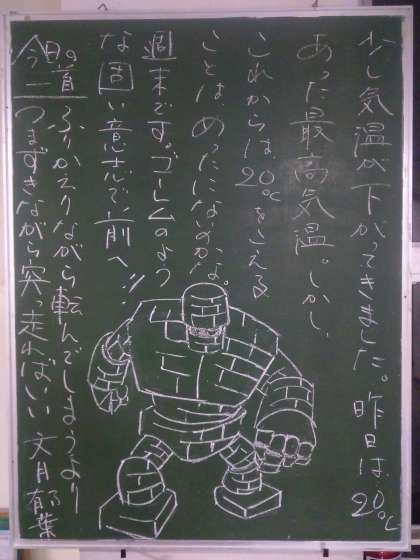 少し気温が下がってきました。昨日は20℃
あった最高気温。しかし、
これからは20℃をこえる
ことはめったにないのかな。
週末です。ゴーレムのよう
な固い意志で、前へ!!
今日の一首
ふりかえりながら転んでしまうより
つまずきながら突っ走ればいい 文月郁葉